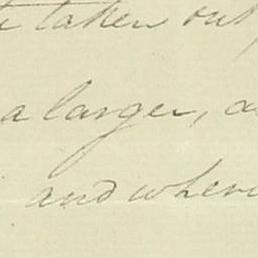 taken out,
a larger, a
and where